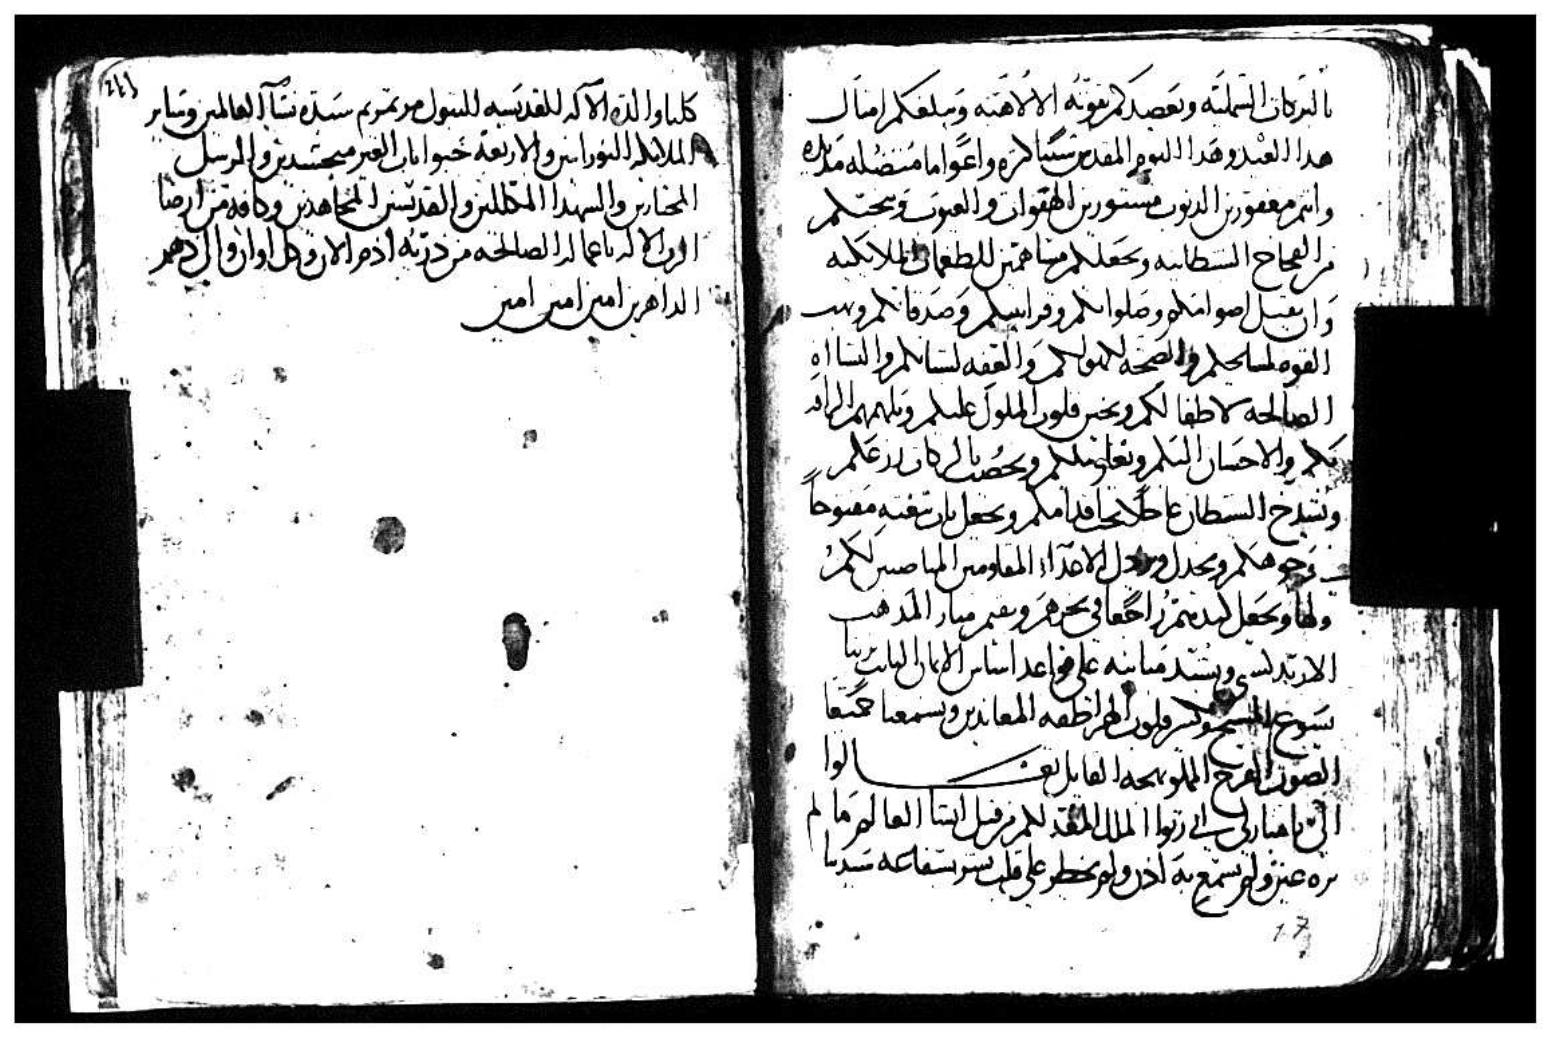 بالبركات السمايه ويعضدكم بقوته الالاهيه ويبلغكم امثال
هدا العيد وهدا اليوم المقدس سنينا كثيره واعواما متصله مديده
وانتم مغفورين الدنوب مستورين الهفوات والعيوب وينجيكم
من الفخاخ الشيطانيه ويجعلكم مساهمين للطغمات الملايكيه
وان يقبل اصوامكم وصلواتكم وقرابينكم وصدقاتكم ويهب
القوه لمشايخكم والصحه لكهولكم والعفه لشبابكم والنشااه
الصالحه لاطفالكم ويحنن قلوب الملوك عليكم ويلهمهم الرافه
بكم والاحسان اليكم ويعلي كلمتكم ويخصب بالبركات زرعكم
ويشدخ الشيطان عاجلا تحت اقدامكم ويجعل باب بيعته مفتوحا
في وجوهكم ويخدل ويردل الاعداء المقاومين المناصبين لكم
ولها ويجعل كيدهم راجعا في نحرهم ويقيم منار المدهب
الارتدكسي ويشيد مبانيه على قواعد اساس الايمان الثابت بربنا
يسوع المسيح ويكسر قلوب الهراطقه المعاندين ويسمعنا جميعا
الصوت الفرح المملو بهجه القايل تعالوا
الي يا مباركي ابي رثوا الملك المعد لكم من قبل انشا العالم ما لم
تره عين ولم تسمع به ادن ولم يخطر على قلب بشر بشفاعه سيدتنا
٢٤٤
كلنا والدة الاله القديسه البتول مرتمريم سيدة نسآ العالمين وساير
الملايكه النورانيين والاربعة حيوانات الغير متجسدين والرسل
المختارين والشهدا المكللين والقديسين المجاهدين وكافة من ارضا
الرب الاله باعماله الصالحه من درية ادم الان وكل اوان والي دهر
الداهرين امين امين امين